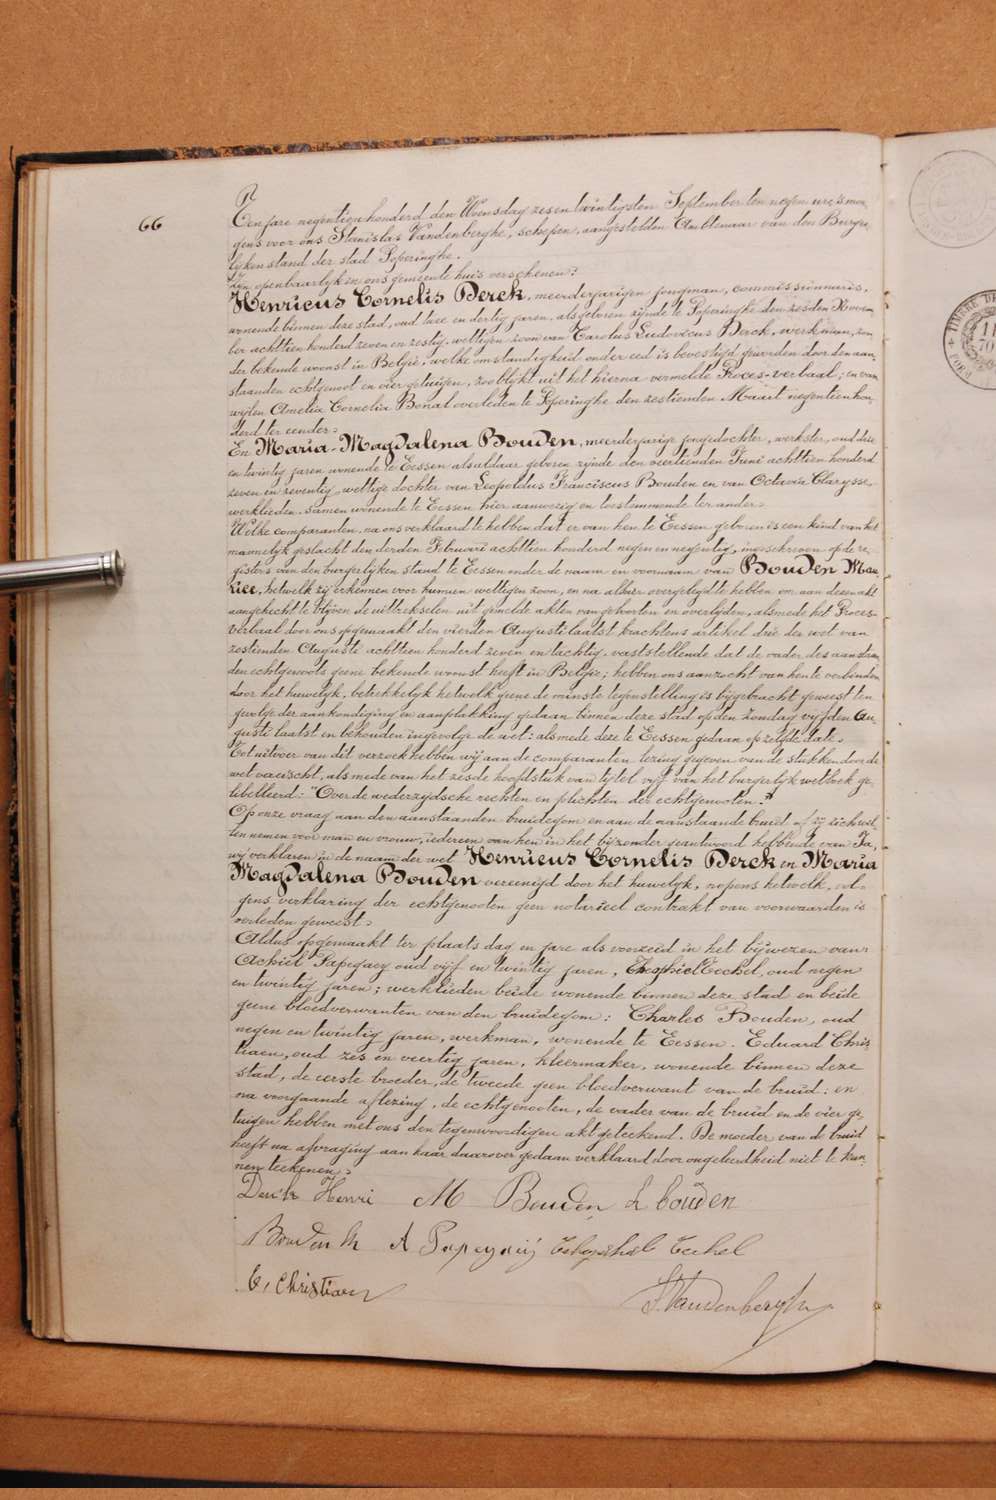 66
Ten jare negentien honderd den Woensdag zesentwintigsten September ten negen ure 's mor
gens voor ons Stanislas Vandenberghe, schepen, aangestelden Ambtenaar van den Burger
lyken stand der stad Poperinghe.
Zyn openbaarlyk in ons gemeente huis verschenen:
Henricus Cornelis Derck, meerderjarigen jongman, commissionnaris,
wonende binnen deze stad, oud twee en dertig jaren, als geboren zynde te Poperinghe den zesden Novem
ber achttien honderd zeven en zestig, wettigen zoon van Carolus Ludovicus Derck, werkman, zon
der bekende woonst in Belgie, welke omstandigheid onder eed is bevestigd geworden door den aan
staanden echtgenoot en vier getuigen, zoo blykt uit het hierna vermelde Proces-verbaal; en van
wylen Amelia Cornelia Bonal overleden te Poperinghe den zestienden Maart negentien hon
derd ter eender.
En Maria-Magdalena Bouden, meerderjarige jongedochter, werkster, oud drie
en twintig jaren wonende te Eessen als aldaar geboren zynde den veertienden Juni achttien honderd
zeven en zeventig, wettige dochter van Leopoldus Franciscus Bouden en van Octavie Clarysse,
werklieden, samen wonende te Eessen hier aanwezig en toestemmende ter ander.
Welke comparanten, na ons verklaard te hebben dat er van hen te Eessen geboren is een kind van het
mannelyk geslacht den derden Februari achttien honderd negen en negentig, ingeschreven op de re
gisters van den burgerlyken stand te Eessen onder de naam en voornaam van Bouden Mau
rice, hetwelk zy erkennen voor hunnen wettigen zoon, en na alhier overgelegd te hebben om aan dezen akt
aangehecht te blyven de uittrekselen uit gemelde akten van geboorten en overlyden, alsmede het Proces-
Verbaal door ons opgemaakt den vierden Augusti laatst krachtens artikel drie der wet van
zestienden Auguste achttien honderd zeven en tachtig, vaststellende dat de vader des aanstaan
den echtgenoots geene bekende woonst heeft in Belgie; hebben ons aanzocht van hen te verbinden
door het huwelyk, betrekkelyk hetwelk geene de minste tegenstelling is bygebracht geweest ten
gevolge der aankondiging en aanplakking gedaan binnen deze stad op den Zondag vyfden Au
guste laatst en behouden ingevolge de wet: alsmede deze te Eessen gedaan op zelfde date.
Tot uitvoer van dit verzoek hebben wy aan de comparanten lezing gegeven van de stukken door de
wet vereischt, als mede van het zesde hoofdstuk van tytel vyf van het burgerlyk wetboek ge
titelleerd: "Over de wederzydsche rechten en plichten der echtgenooten."
Op onze vraag aan den aanstaanden bruidegom en aan de aanstaande bruid of zy zich wil
len nemen voor man en vrouw, iedereen van hen in het byzonder geantwoord hebbende van Ja,
wy verklaren in de naam der wet Henricus Cornelis Derck en Maria
Magdalena Bouden vereenigd door het huwelyk, nopens hetwelk, vol
gens verklaring der echtgenooten geen notarieel contrakt van voorwaarden is
verleden geweest.
Aldus opgemaakt ter plaats dag en jare als voorzeid in het bywezen van:
Achiel Papegaey oud vyf en twintig jaren, Theophiel Techel, oud negen
en twintig jaren; werklieden beide wonende binnen deze stad en beide
geene bloedverwanten van den bruidegom: Charles Bouden, oud
negen en twintig jaren, werkman, wonende te Eessen. Eduard Chris
tiaen, oud zes en veertig jaren, kleermaker, wonende binnen deze
stad, de eerste broeder, de tweede geen bloedverwant van de bruid: en
na voorgaande aflezing, de echtgenooten, de vader van de bruid en de vier ge
tuigen hebben met ons den tegenwoordigen akt geteekend. De moeder van de bruid
heeft na afvraging aan haar daarover gedaan verklaard door ongeleerdheid niet te kun
nen teekenen.
Derck Henri M Bouden L bouden
Bouden Ch A Papegaeij Techel
E, Christiaen S. Vandenberghe